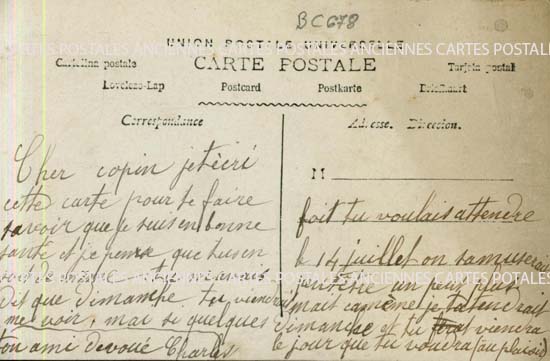 BC678
UNION POSTALE UNIVERSELLE
CARTES POSTALES ANCIENNES CARTES POSTALES ANCIENNES CARTES POSTALES
Cartolina postale CARTE POSTALE Tarjeta postal
Levelezo-Lap Postcard Postkarte Briefkaart
Correspondance
Cher copin je técri
cette carte pour te faire
savoir que je suis en bonne
santé et je pense que tu es en
Dit que Dimanche tu viendrai
me voir, mai si quelques
ton ami dévoué Charles
Adresse. Direccion.
M
foit tu voulais attendre
le 14 juillet on samuserai
un peu plus
mais can même je tatendrait
dimanche et tu viendra
le jour que tu voudra au plaisir